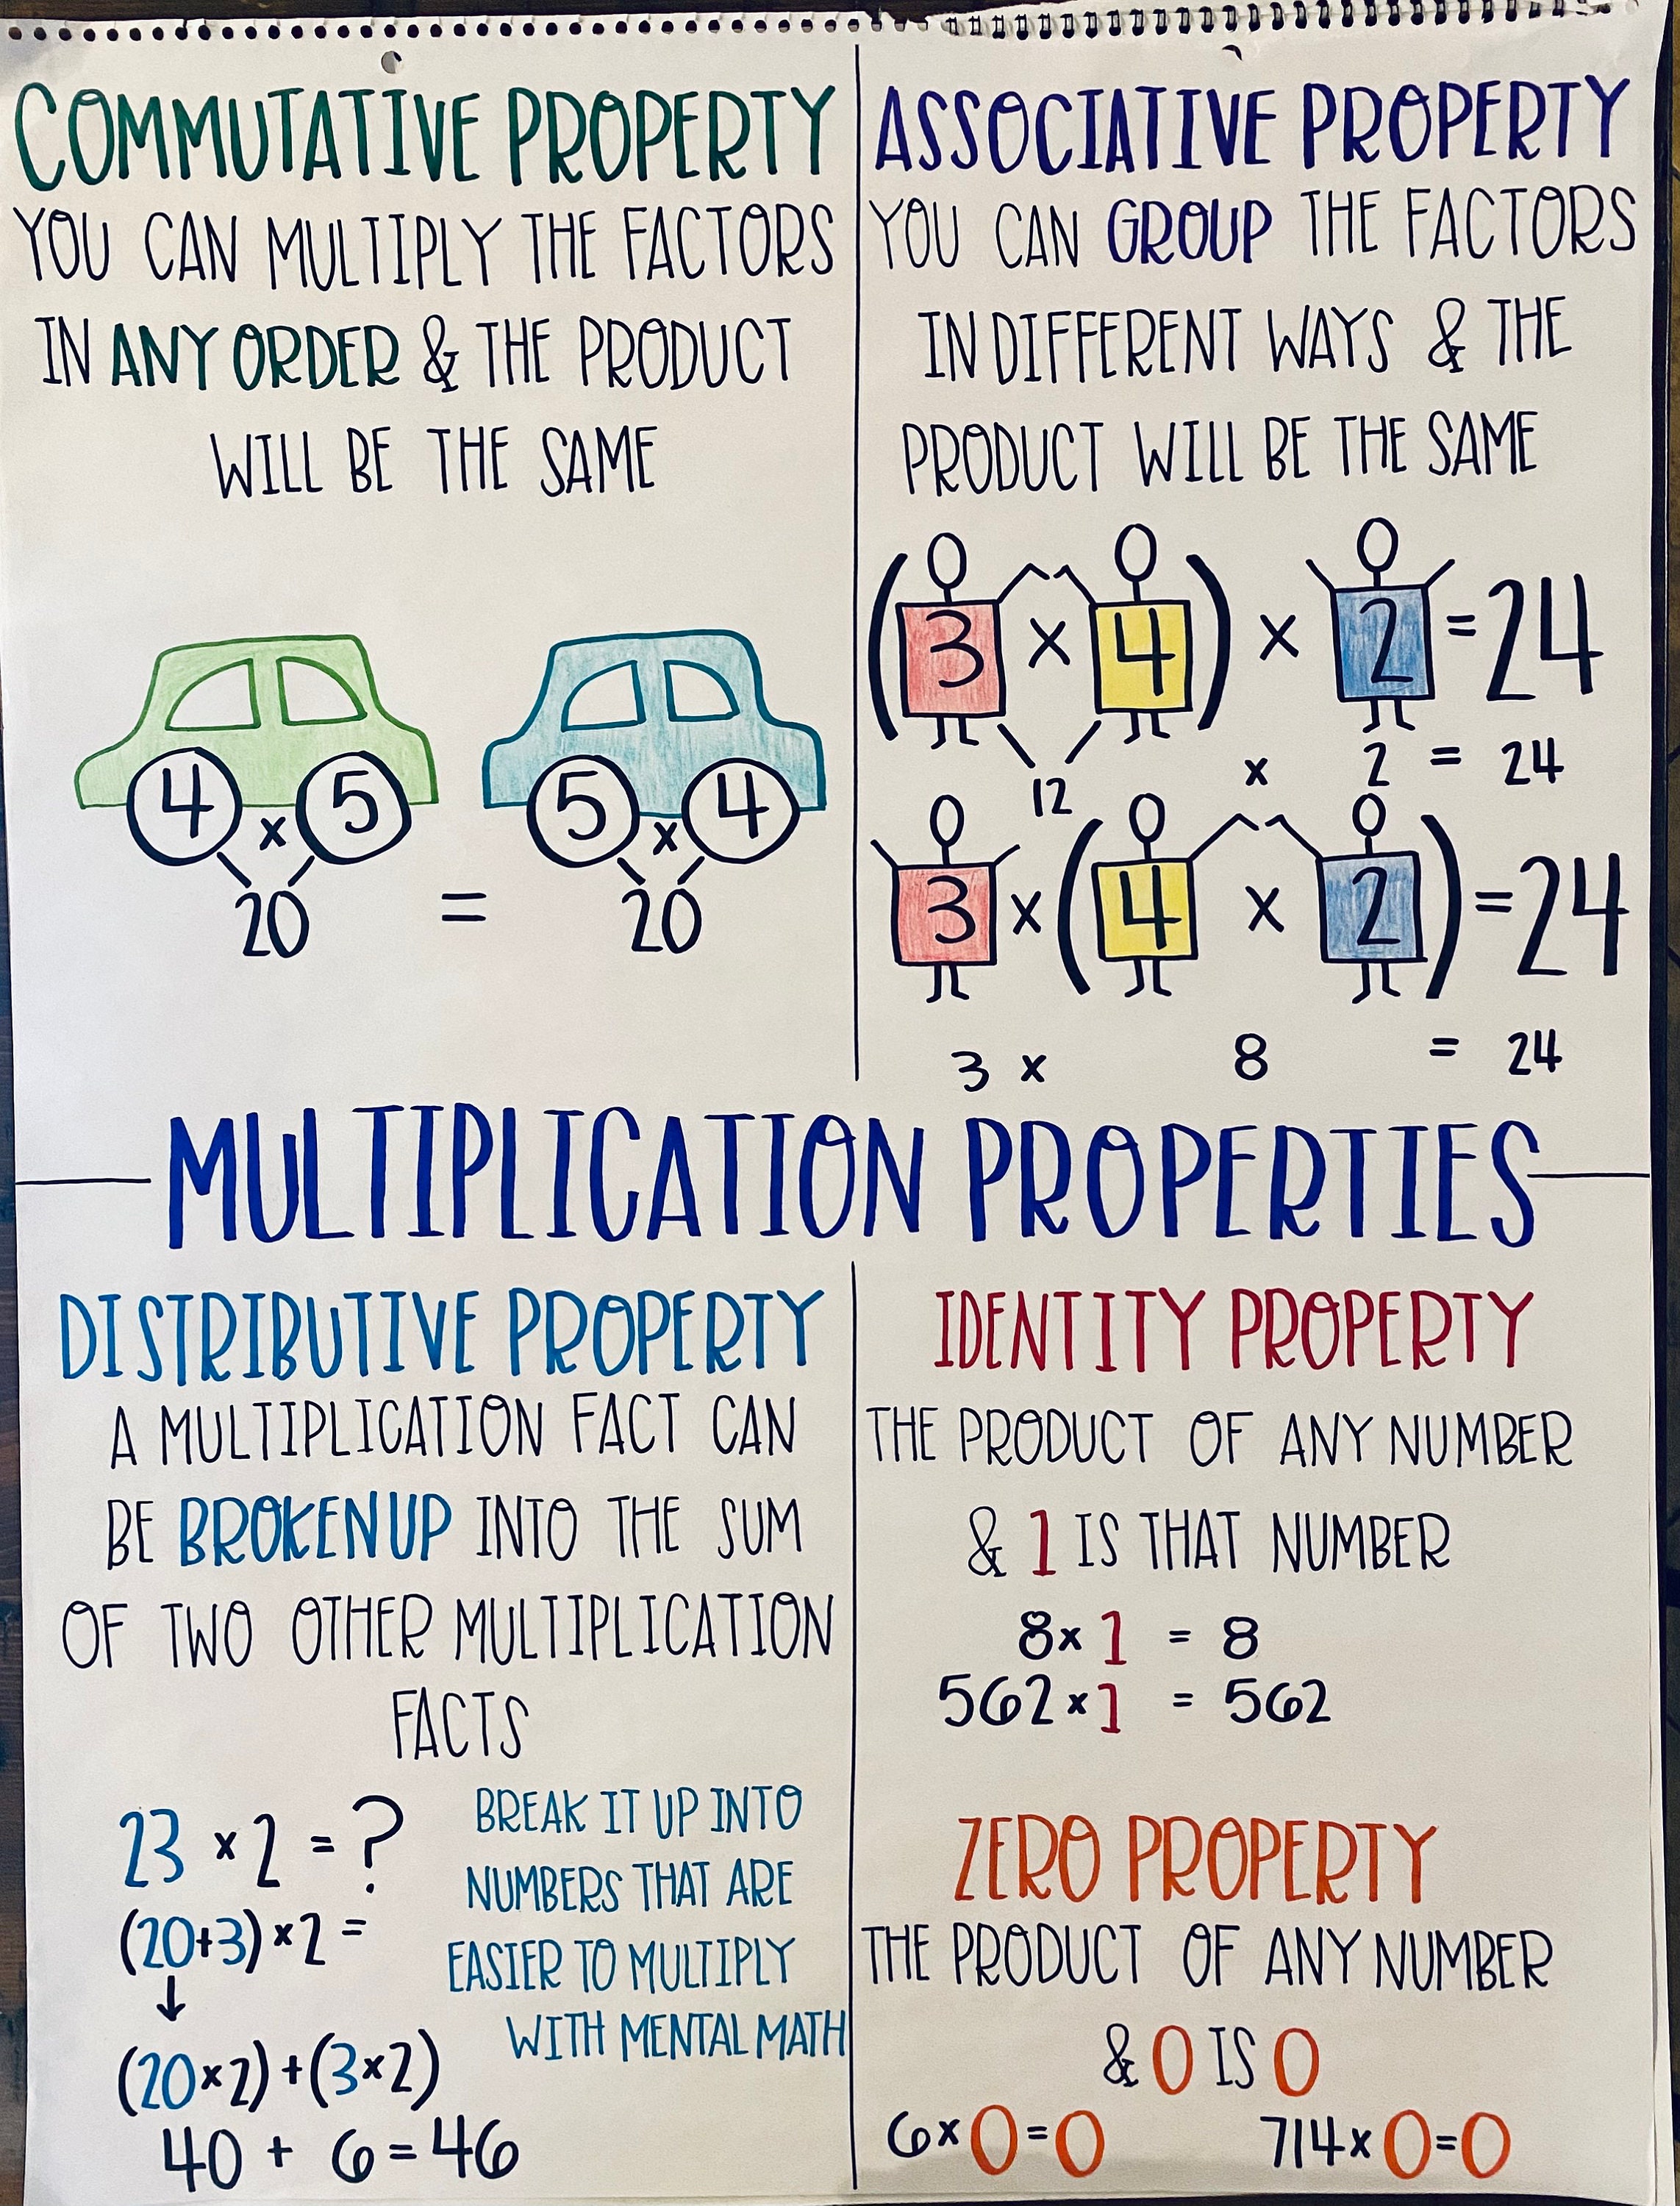 COMMUTATIVE PROPERTY
YOU CAN MULTIPLY THE FACTORS
IN ANY ORDER & THE PRODUCT
WILL BE THE SAME
4 x 5 5 x 4
20 = 20
ASSOCIATIVE PROPERTY
YOU CAN GROUP THE FACTORS
IN DIFFERENT WAYS & THE
PRODUCT WILL BE THE SAME
(3 x 4) x 2 = 24
12 x 2 = 24
3 x (4 x 2) = 24
3 x 8 = 24
MULTIPLICATION PROPERTIES
DISTRIBUTIVE PROPERTY
A MULTIPLICATION FACT CAN
BE BROKEN UP INTO THE SUM
OF TWO OTHER MULTIPLICATION
FACTS
23 x 2 = ?
(20+3) x 2 =
↓
(20x2) + (3x2)
40 + 6 = 46
BREAK IT UP INTO
NUMBERS THAT ARE
EASIER TO MULTIPLY
WITH MENTAL MATH
IDENTITY PROPERTY
THE PRODUCT OF ANY NUMBER
& 1 IS THAT NUMBER
8 x 1 = 8
562 x 1 = 562
ZERO PROPERTY
THE PRODUCT OF ANY NUMBER
& 0 IS 0
6 x 0 = 0 714 x 0 = 0